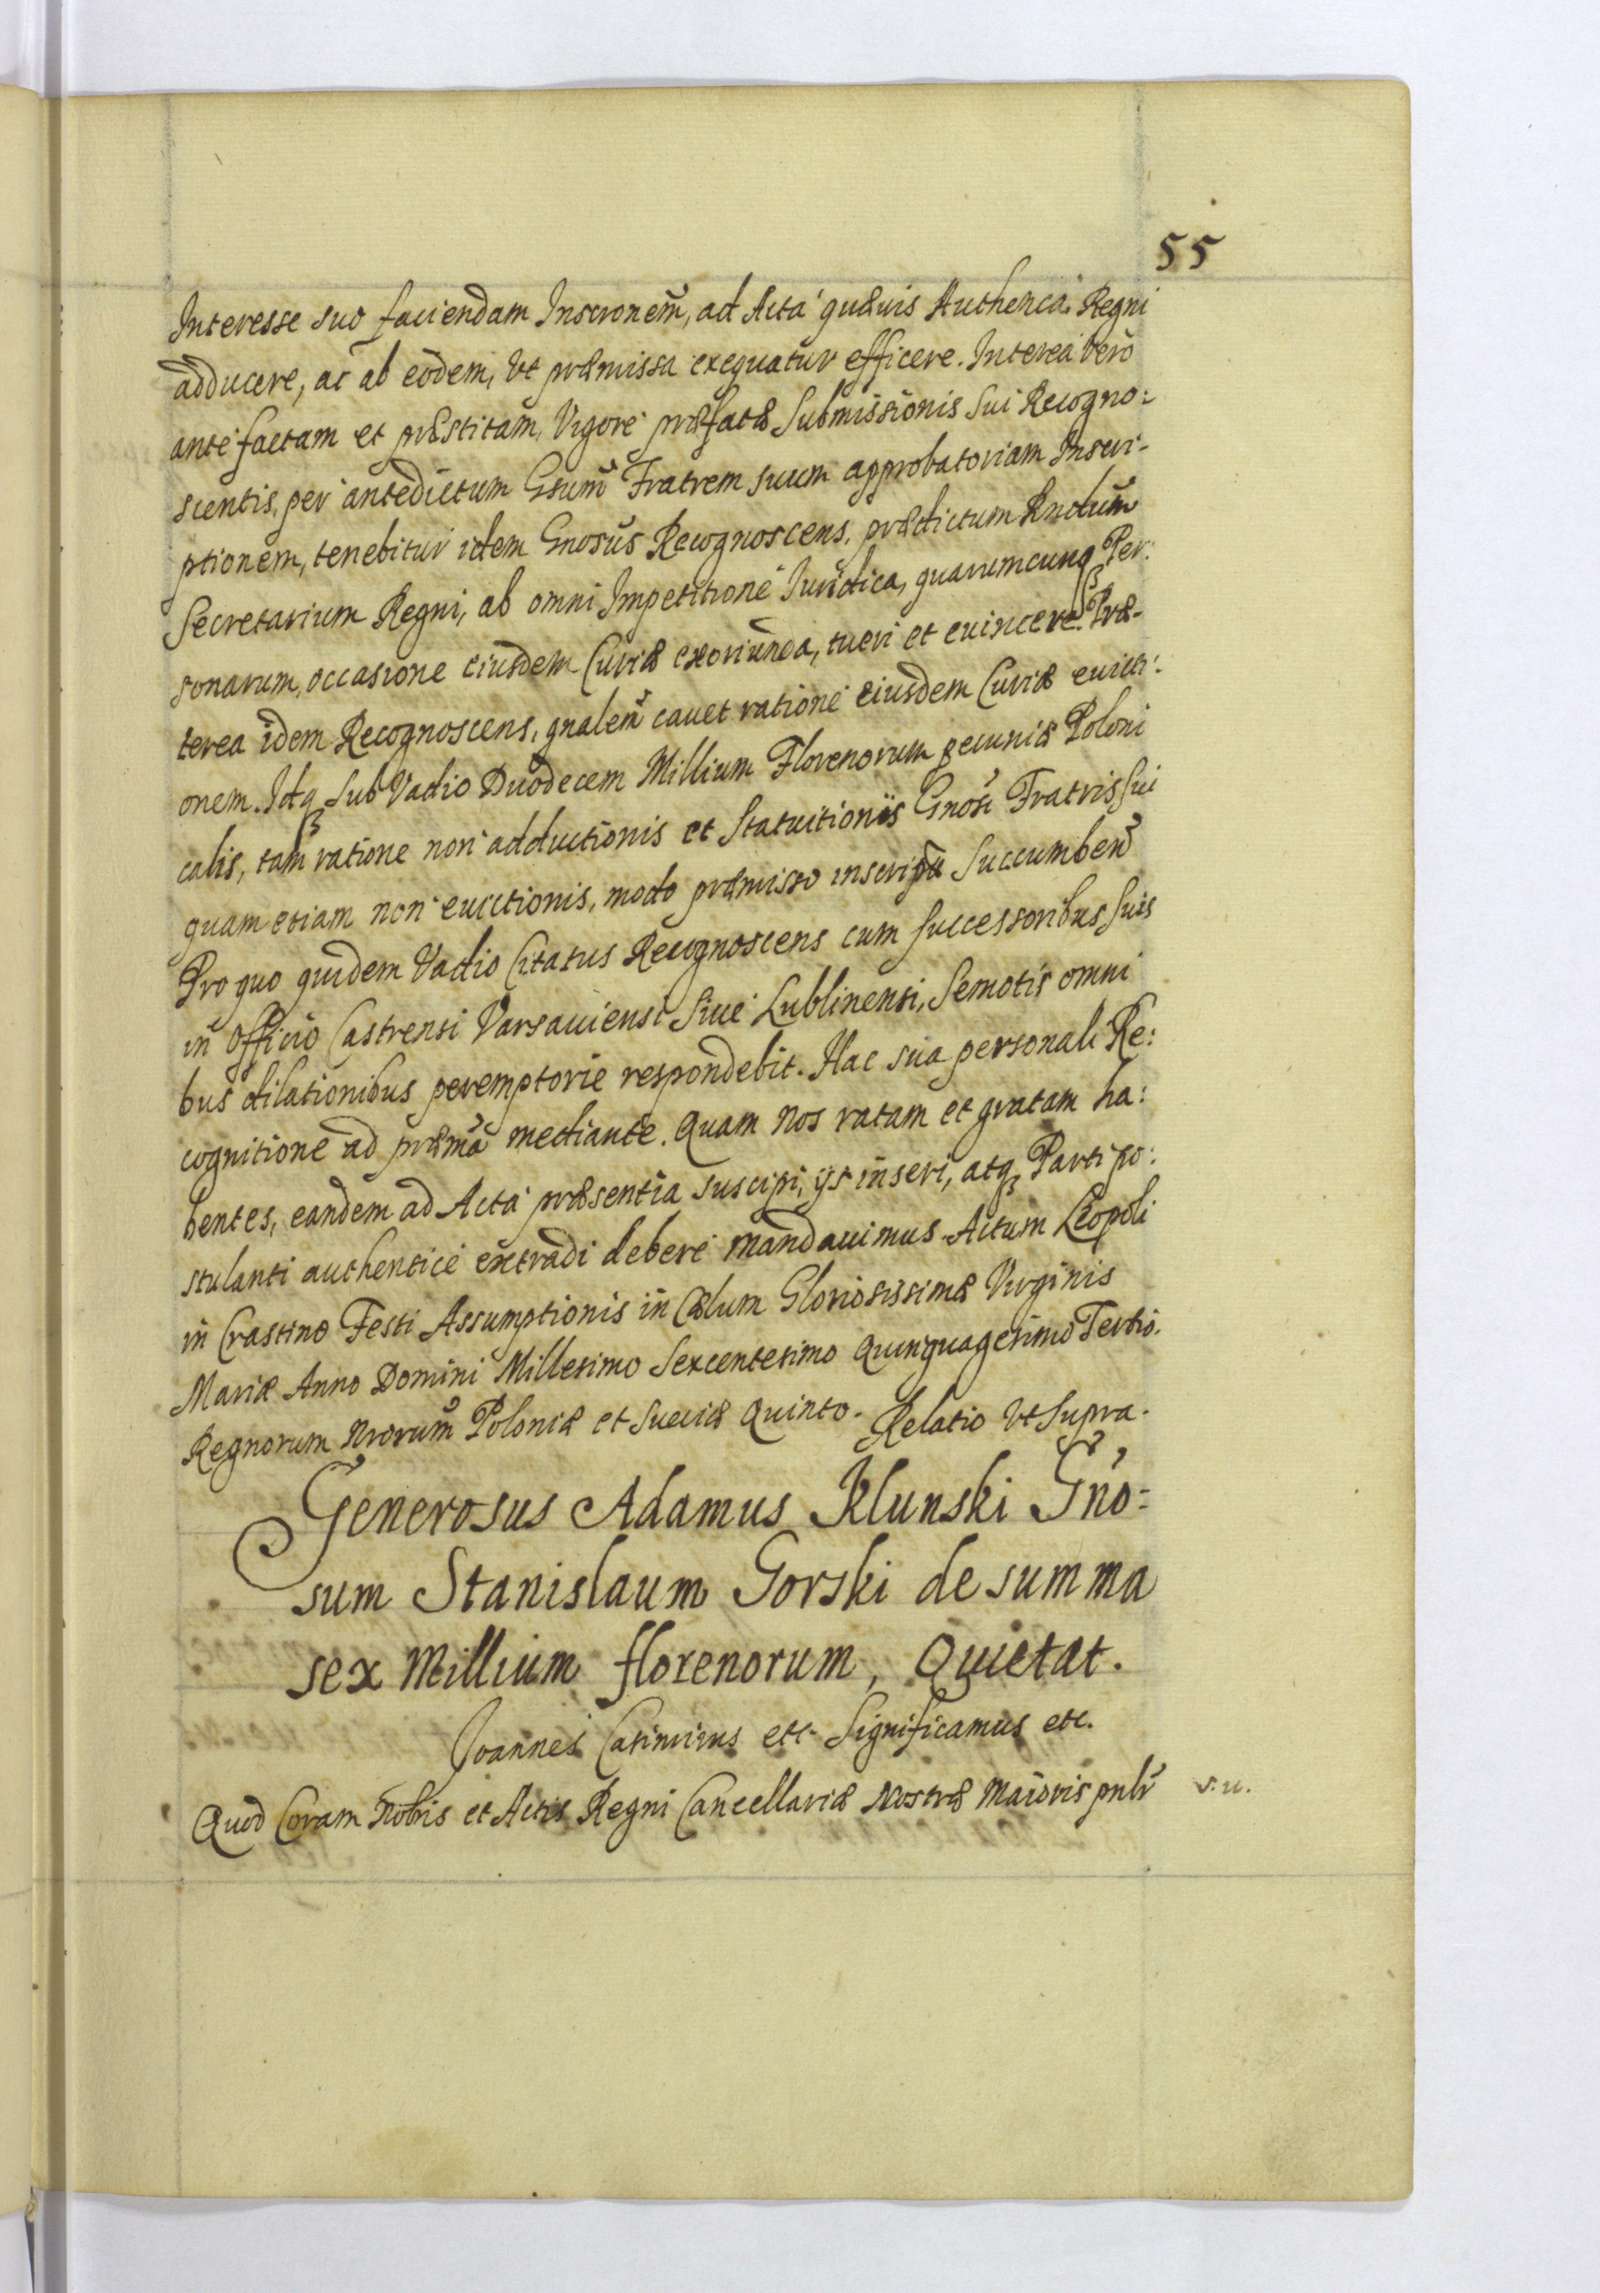 55
Interesse suo faciendam Inscronem̃, ad Acta quævis Authenca Regni
adducere, ac ab eodem, Vt præmissa exequatur efficere. Interea Vero
ante factam et præstitam, Vigore præfatæ Submissionis Sui Recogno:
scentis, per antedictum Gsum̃ Fratrem suum approbatoriam Inscri-
ptionem, tenebitur idem Gnosus Recognoscens, prædictum Rndum̃
Secretarium Regni, ab omni Impetitione Iuridica, quarumcunqꝫ Per:
sonarum, occasione eiusdem Curiæ exoriunda, tueri et euincere. Præ-
terea idem Recognoscens, gnalem̃ cauet ratione eiusdem Curiæ euicti:
onem. Idqꝫ sub Vadio Duodecem Millium Florenorum pecuniæ Poloni
calis, tam ratione non adductionis et Statuitionis Gnosi Fratris sui
quam etiam non euictionis, modo præmisso Succumben̄
Pro quo quidem Vadio Citatus Recognoscens cum successoribus suis
in Officio Castrensi Varsauiensi siue Lublinensi, Semotis omni
bus dilationibus peremptorie respondebit. Hac sua personali Re:
cognitione ad præm̃a mediante. Quam Nos ratam et gratam ha:
bentes, eandem ad Acta præsentia suscipi, ijs inseri, atqꝫ Parti po:
stulanti authentice extradi debere mandauimus. Actum Leopoli
in Crastino Festi Assumptionis in Cælum Gloriosissimæ Virginis
Mariæ Anno Domini Millesimo Sexcentesimo Quinquagesimo Tertio.
Regnorum Nrorum̃ Poloniæ et Sueciæ Quinto. Relatio Vt Supra.
Generosus Adamus Klunski Gño-
sum Stanislaum Gorski de summa
sex Millium florenorum, Quietat.
Joannes Casimirus etc. Significamus etc.
Quod Coram Nobis et Actis Regni Cancellariæ Nostræ Maioris pnlr̃ v. u.